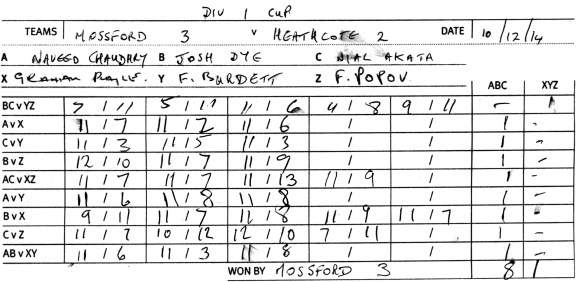 DIV 1 CUP
TEAMS MOSSFORD 3 V HEATHCOTE 2 DATE 10/12/14
A NAVEED CHAUDHRY B JOSH DYE C NIAL AKATA
X GRAHAM Y F. BURDETT Z F. POPOV
ABC XYZ
BCvYZ 7 / 11 5 / 11 11 / 6 4 / 8 9 / 11 - 1
AvX 11 / 7 11 / 2 11 / 6 / / 1 -
CvY 11 / 3 11 / 5 11 / 3 / / 1 -
BvZ 12 / 10 11 / 7 11 / 9 / / 1 -
ACvXZ 11 / 7 11 / 7 11 / 13 11 / 9 / 1 -
AvY 11 / 6 11 / 8 11 / 8 / / 1 -
BvX 9 / 11 11 / 7 11 / 8 11 / 9 11 / 7 1 -
CvZ 11 / 7 10 / 12 12 / 10 7 / 11 / 1 -
ABvXY 11 / 6 11 / 3 11 / 8 / / 1 -
WON BY MOSSFORD 3 8 1